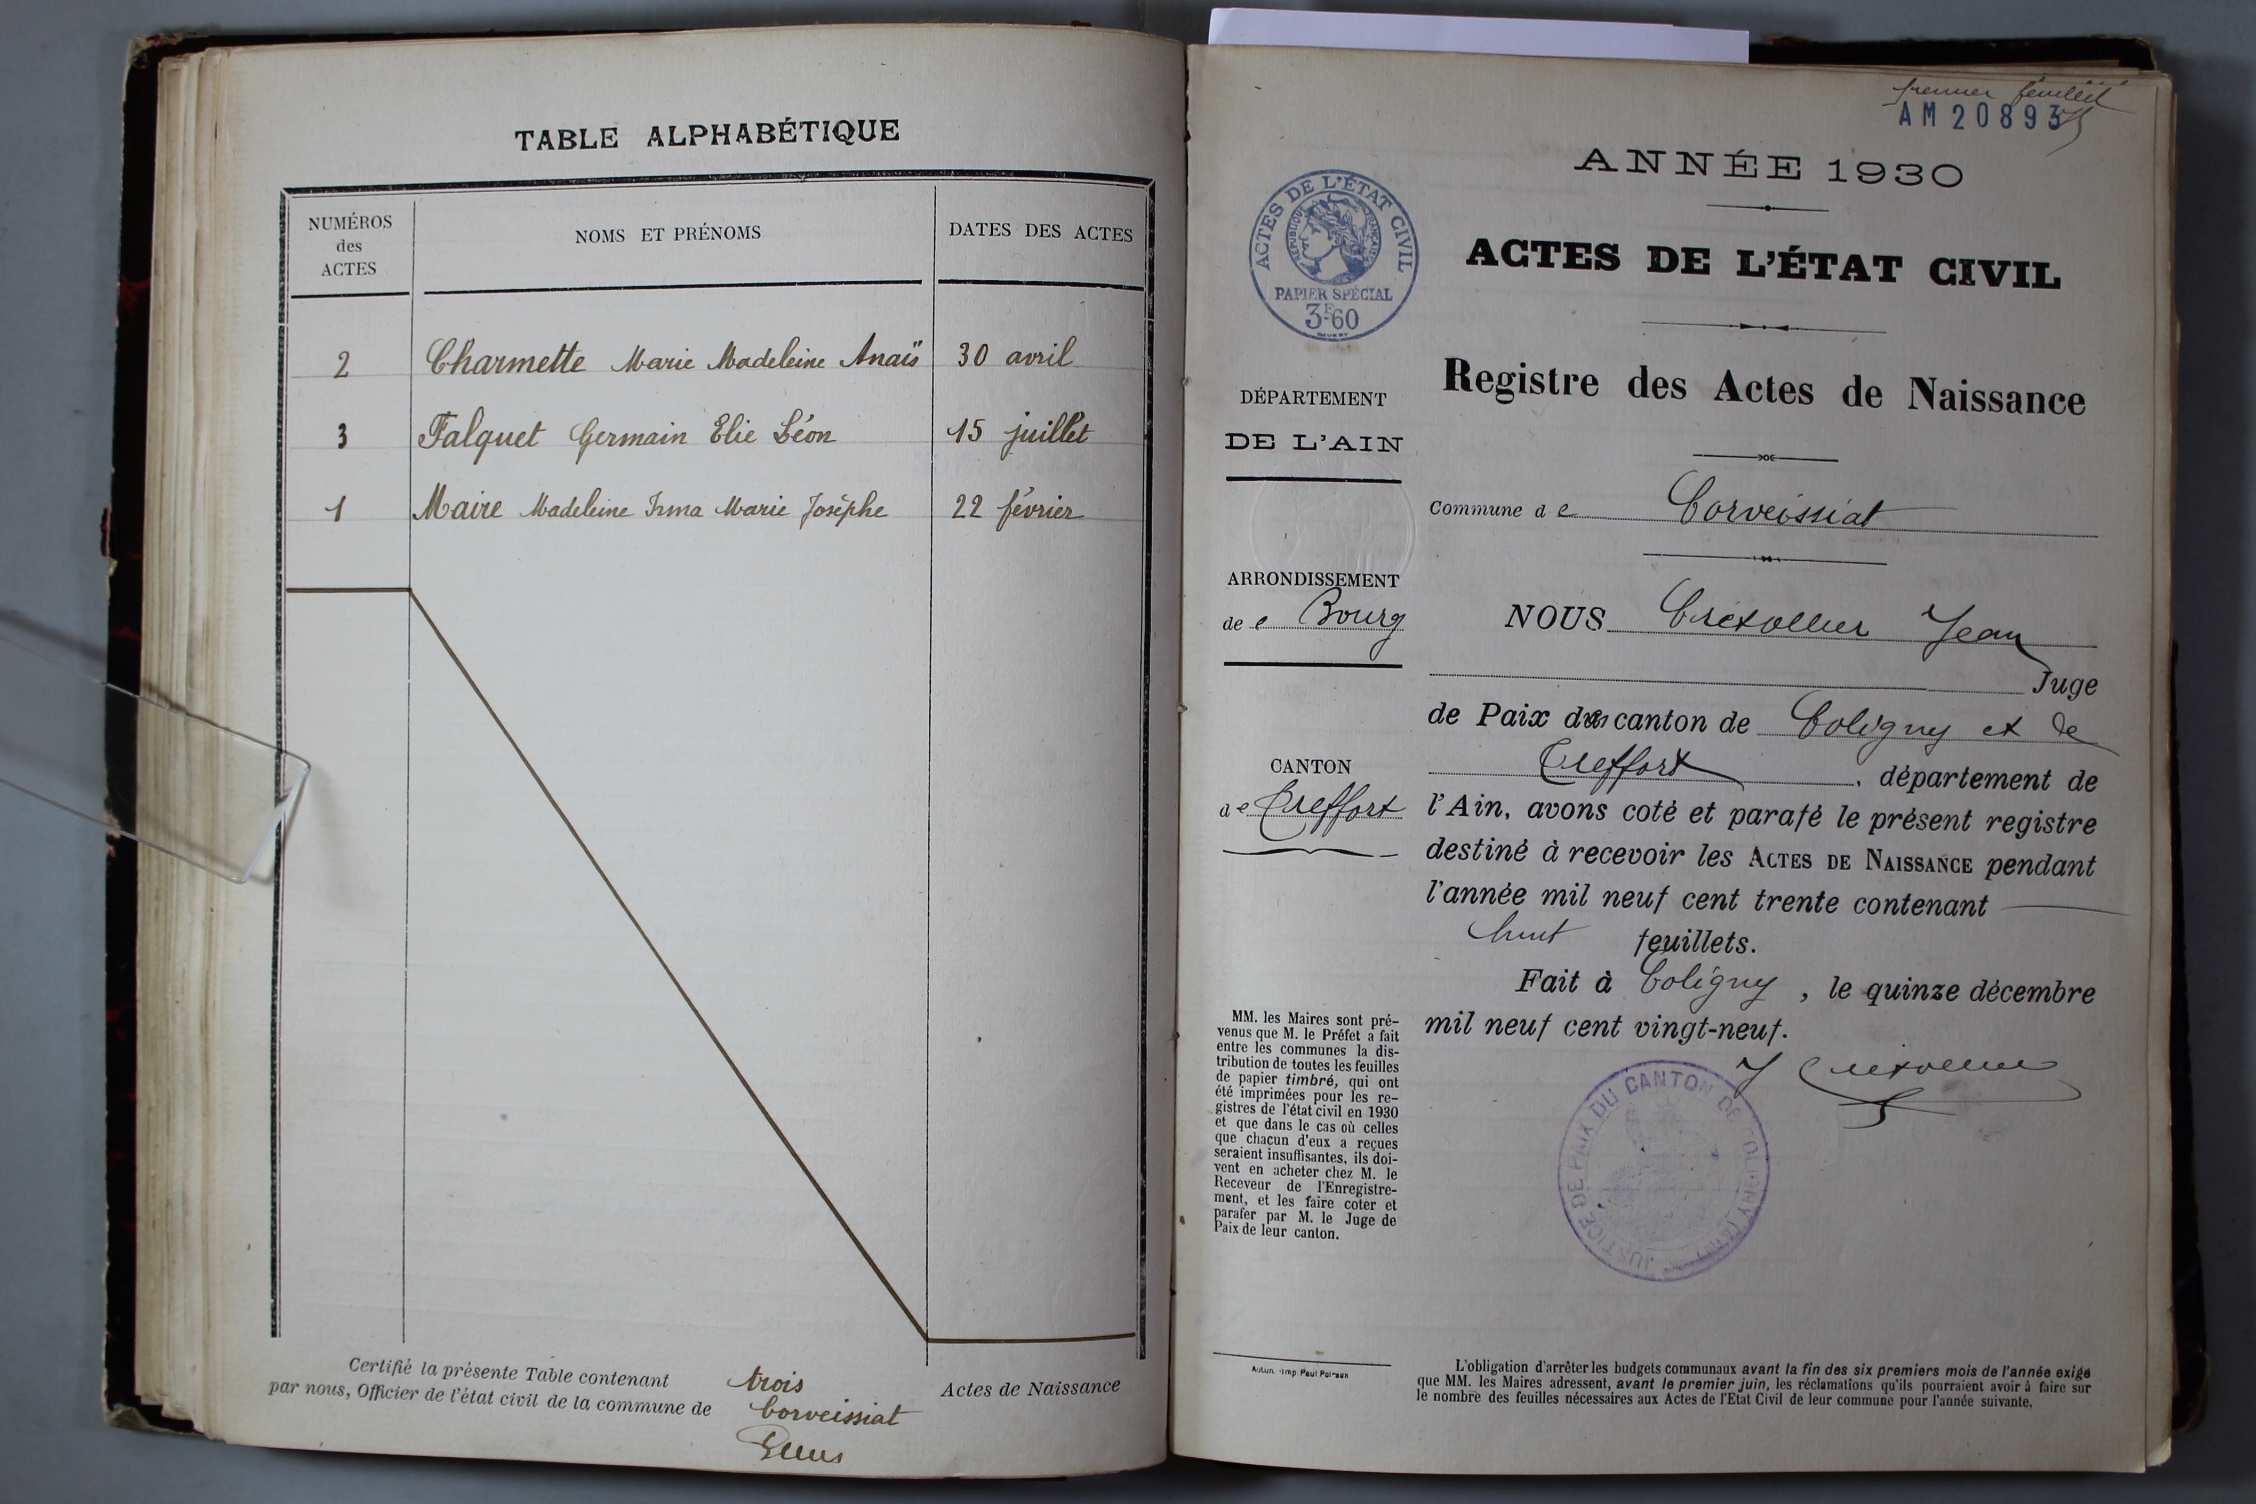 TABLE ALPHABÉTIQUE
NUMÉROS
des
ACTES
NOMS ET PRÉNOMS
DATES DES ACTES
2 Charmette Marie Madeleine Anaïs 30 avril
3 Falquet Germain Elie Léon 15 juillet
1 Maire Madeleine Irma Marie Josèphe 22 février
Certifié la présente Table contenant trois Actes de Naissance
par nous, Officier de l'état civil de la commune de Corveissiat
premier feuillet
AM 20893
ANNÉE 1930
ACTES DE L'ÉTAT CIVIL
RÉPUBLIQUE FRANÇAISE
PAPIER SPÉCIAL
3F60
ACTES DE L'ÉTAT CIVIL
Registre des Actes de Naissance
DÉPARTEMENT
DE L'AIN
Commune de Corveissiat
ARRONDISSEMENT
de Bourg
NOUS Jean
Juge
de Paix des canton de Coligny et de
Treffort, département de
CANTON
de Treffort
l'Ain, avons coté et parafé le présent registre
destiné à recevoir les ACTES DE NAISSANCE pendant
l'année mil neuf cent trente contenant
huit feuillets.
Fait à Coligny, le quinze décembre
mil neuf cent vingt-neuf.
MM. les Maires sont pré-
venus que M. le Préfet a fait
entre les communes la dis-
tribution de toutes les feuilles
de papier timbré, qui ont
été imprimées pour les re-
gistres de l'état civil en 1930
et que dans le cas où celles
que chacun d'eux a reçues
seraient insuffisantes, ils doi-
vent en acheter chez M. le
Receveur de l'Enregistre-
ment, et les faire coter et
parafer par M. le Juge de
Paix de leur canton.
JUSTICE DE PAIX DU CANTON DE COLIGNY (AIN)
Autun. - Imp. Paul
L'obligation d'arrêter les budgets communaux avant la fin des six premiers mois de l'année exige
que MM. les Maires adressent, avant le premier juin, les réclamations qu'ils pourraient avoir à faire sur
le nombre des feuilles nécessaires aux Actes de l'Etat Civil de leur commune pour l'année suivante.